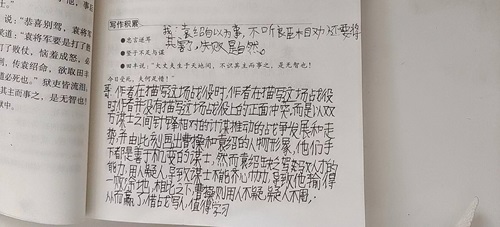 说："恭喜别驾，袁将
袁将军要是打了胜
打了败仗，恼羞成怒，必
传袁绍命，欲取田丰
必死也。"狱吏皆流泪
其主而事之，是无智也！
写作积累
●忠言逆耳
●竖子不足与谋
●田丰说：大丈夫生于天地间，不识其主而事之，是无智也！
今日受死，夫何足惜！"
我：袁绍自以为事，不听
失败是自然。
哥：作者在描写这场战役时，作者在描写这场战役
时作者并没有描写这场战役上的正面冲突，而是以双
方谋士之间针锋相对的计谋推动的战争发展和走
势，并由此刻画出曹操和袁绍的人物形象，他们手
下都是富于机变的谋士，然而袁绍缺乏驾驭人才的
能力，用人疑人，导致谋士不能齐心协力，导致他输得
一败涂地，相比之下，曹操则用人不疑，疑人不用，
从而赢了，借战写人，值得学习